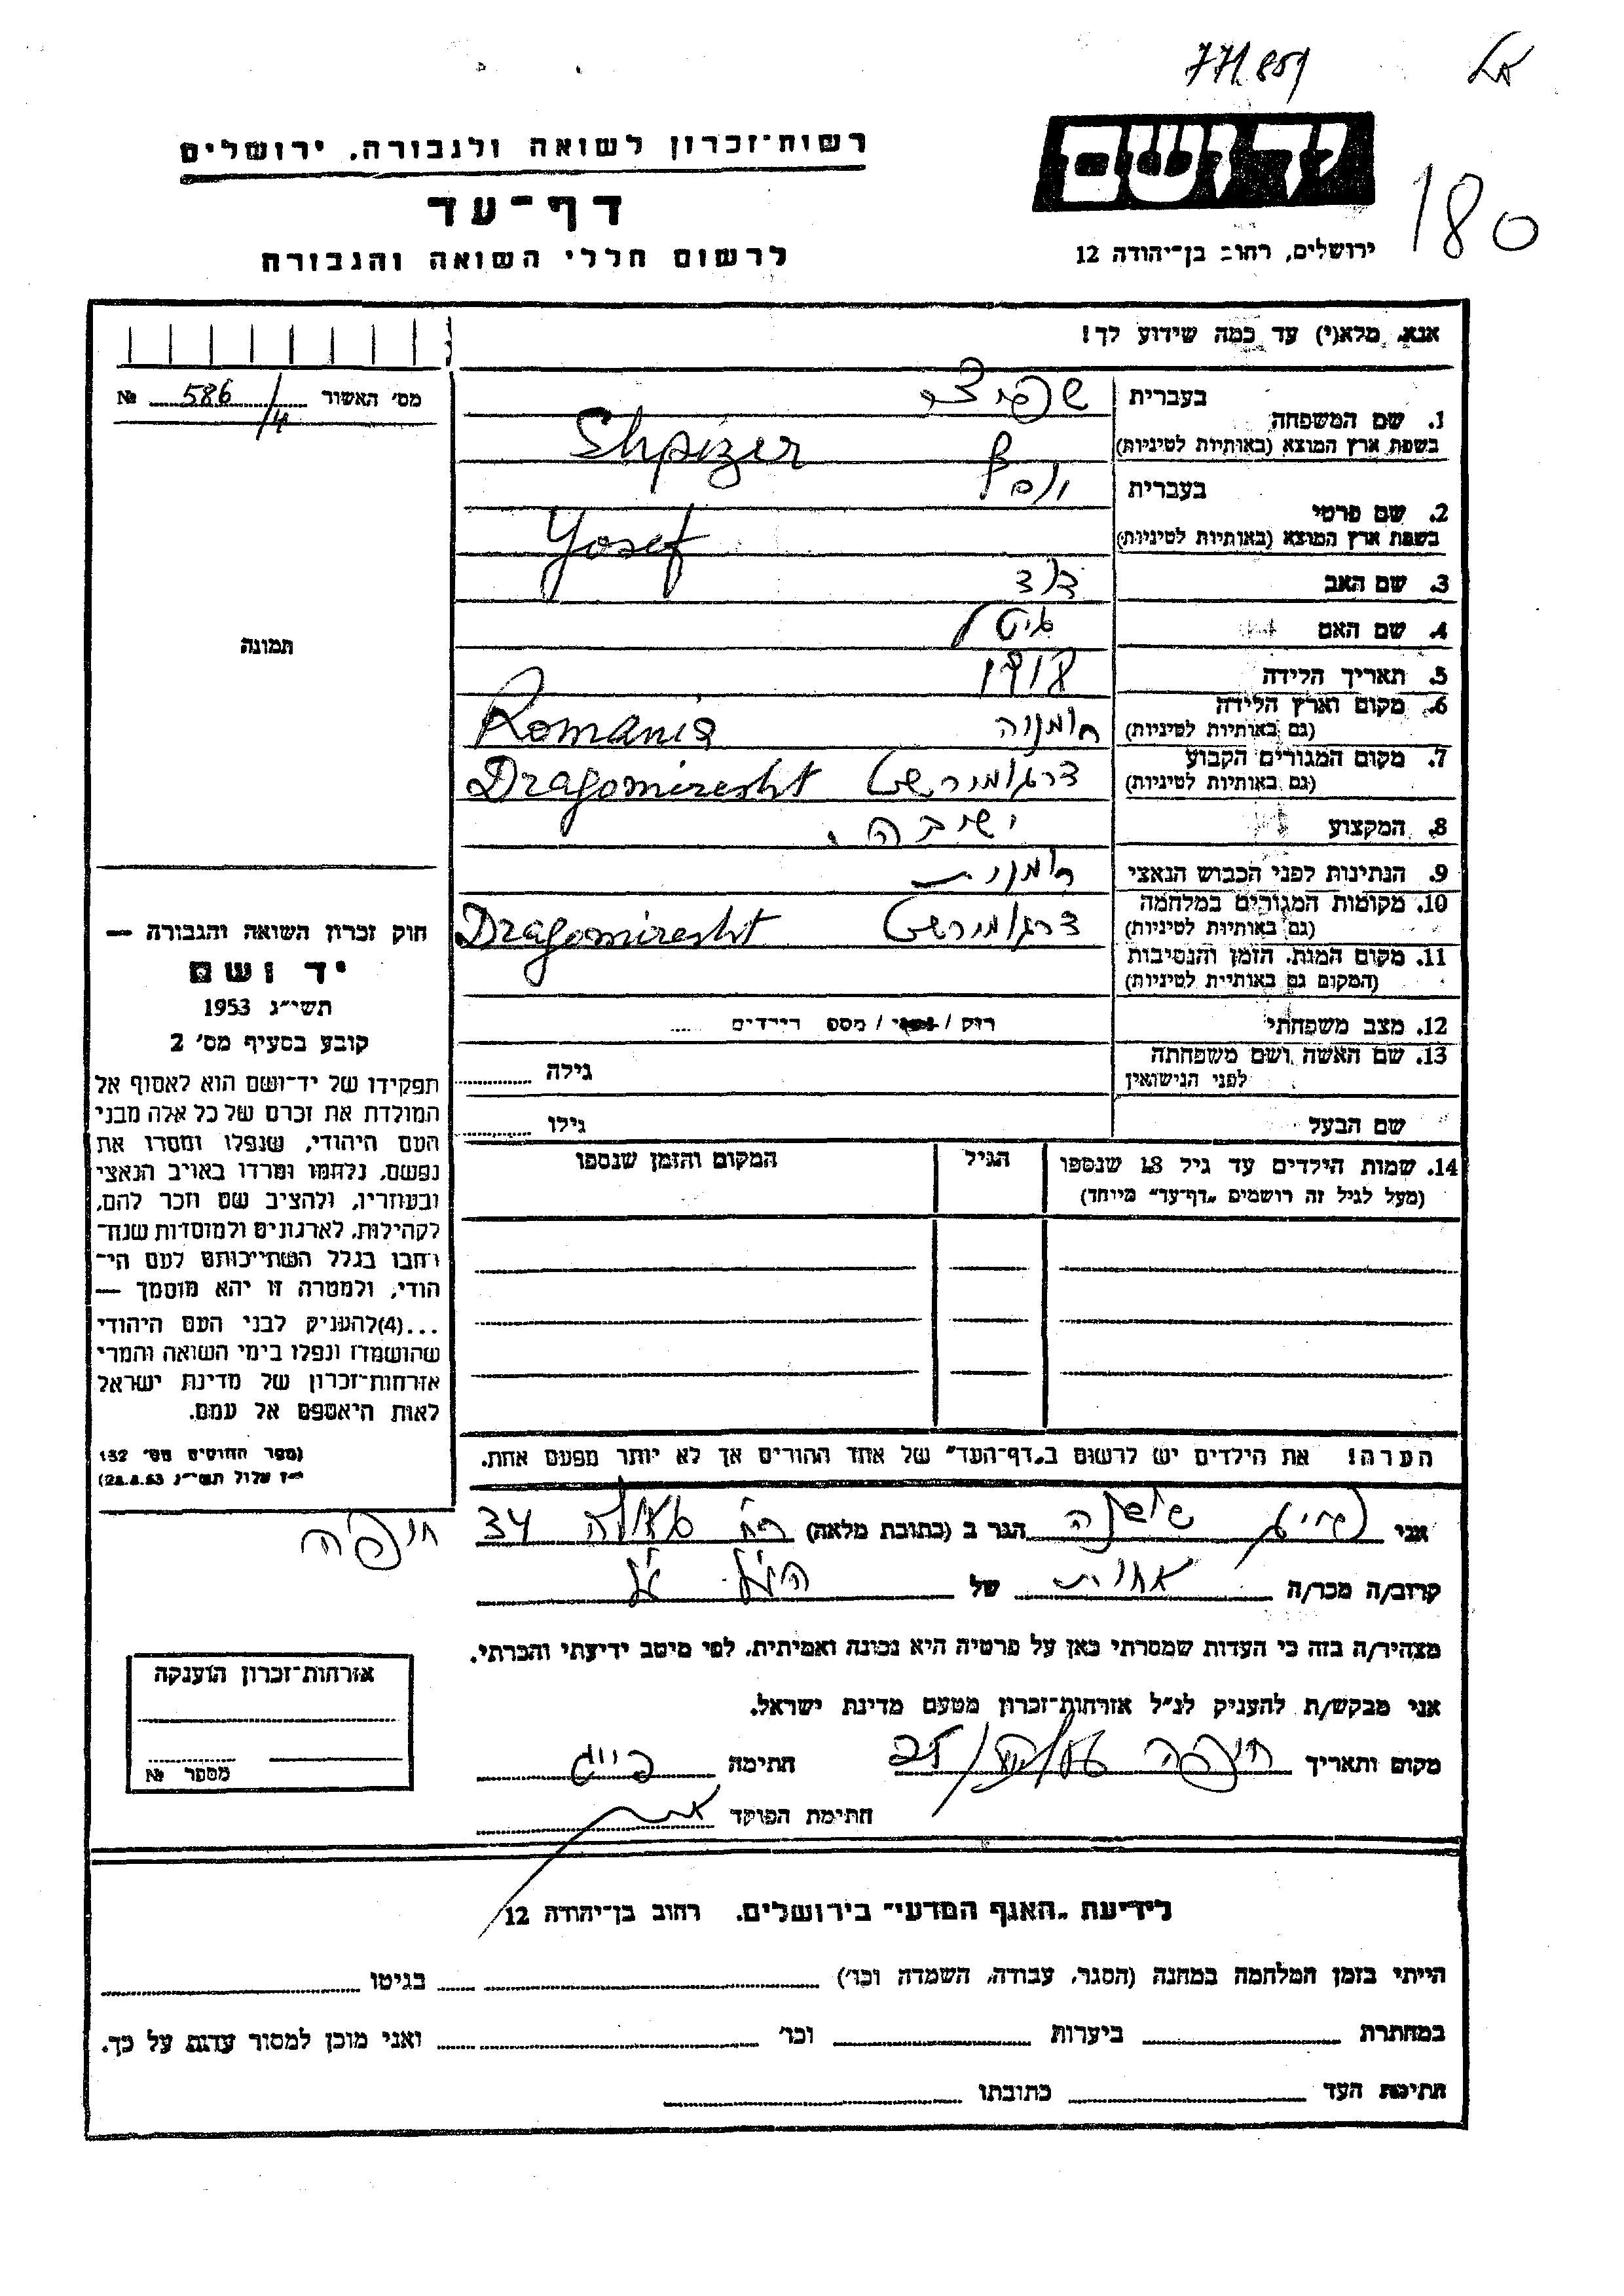 771.859
180
יד ושם
ירושלים, רחוב בן־יהודה 12
רשות־זכרון לשואה ולגבורה, ירושלים
דף־עד
לרשום חללי השואה והגבורה
אנא, מלא(י) עד כמה שידוע לך!
מס׳ האשור 586/4 №
1. שם המשפחה
בעברית שפיצר
בשפת ארץ המוצא (באותיות לטיניות) Shpizer
2. שם פרטי
בעברית יוסף
בשפת ארץ המוצא (באותיות לטיניות) Yosef
3. שם האב דוד
4. שם האם גיטל
5. תאריך הלידה 1918
6. מקום וארץ הלידה רומניה Romania
(גם באותיות לטיניות)
7. מקום המגורים הקבוע דרגומירשט Dragomiresht
(גם באותיות לטיניות)
8. המקצוע ישיבה.
9. הנתינות לפני הכבוש הנאצי רומנית
10. מקומות המגורים במלחמה דרגומירשט Dragomiresht
(גם באותיות לטיניות)
11. מקום המות, הזמן והנסיבות
(המקום גם באותיות לטיניות)
12. מצב משפחתי רוק / נשוי / מספ הילדים ....
13. שם האשה ושם משפחתה
לפני הנישואין גילה
שם הבעל גילו
14. שמות הילדים עד גיל 18 שנספו הגיל המקום והזמן שנספו
(מעל לגיל זה רושמים „דף־עד״ מיוחד)
הערה! את הילדים יש לרשום ב„דף־העד״ של אחד ההורים אך לא יותר מפעם אחת.
תמונה
חוק זכרון השואה והגבורה —
יד ושם
תשי״ג 1953
קובע בסעיף מס׳ 2
תפקידו של יד־ושם הוא לאסוף אל
המולדת את זכרם של כל אלה מבני
העם היהודי, שנפלו ומסרו את
נפשם, נלחמו ומרדו באויב הנאצי
ובעוזריו, ולהציב שם וזכר להם,
לקהילות, לארגונים ולמוסדות שנח־
רחבו בגלל השתייכותם לעם הי־
הודי, ולמטרה זו יהא מוסמך —
...(4)להעניק לבני העם היהודי
שהושמדו ונפלו בימי השואה והמרי
אזרחות־זכרון של מדינת ישראל
לאות היאספם אל עמם.
(ספר החוקים מס׳ 132
י״ז אלול תשי״ג 28.8.53)
אני שושנה הגר ב (כתובת מלאה) רח׳ גאולה 34 חיפה
קרוב/ה מכר/ה אחות של הנ״ל
מצהיר/ה בזה כי העדות שמסרתי כאן על פרטיה היא נכונה ואמיתית, לפי מיטב ידיעתי והכרתי.
אני מבקש/ת להעניק לנ״ל אזרחות־זכרון מטעם מדינת ישראל.
מקום ותאריך חיפה חתימה
חתימת הפוקד
אזרחות־זכרון הוענקה
מספר №
לידיעת „האגף המדעי״ בירושלים, רחוב בן־יהודה 12
הייתי בזמן המלחמה במחנה (הסגר, עבודה, השמדה וכו׳) בגיטו
במחתרת ביערות וכו׳ ואני מוכן למסור עדות על כך.
חתימת העד כתובתו